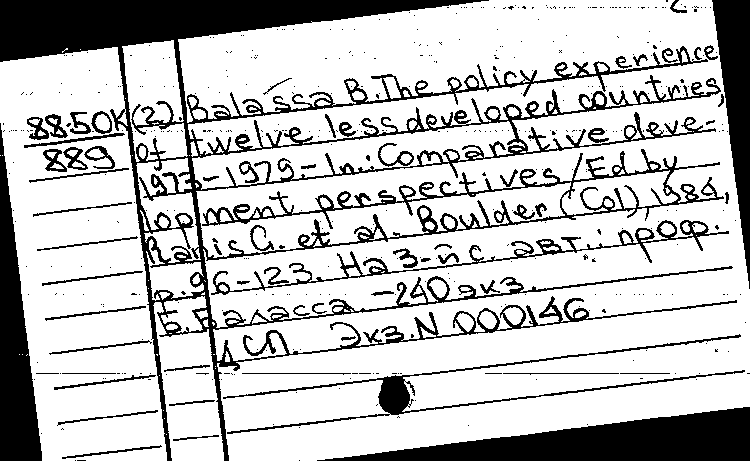 2.
88-50K (2). Balassa B. The policy experience
889 of twelve less developed countries,
1973-1979.- In.: Comparative deve-
lopment perspectives / Ed. by
Ranis G. et al. Boulder (Col), 1984,
p. 96-123. На 3-й с. авт.: проф.
Б. Баласса. -240 экз.
ДСП. Экз. N 000146.